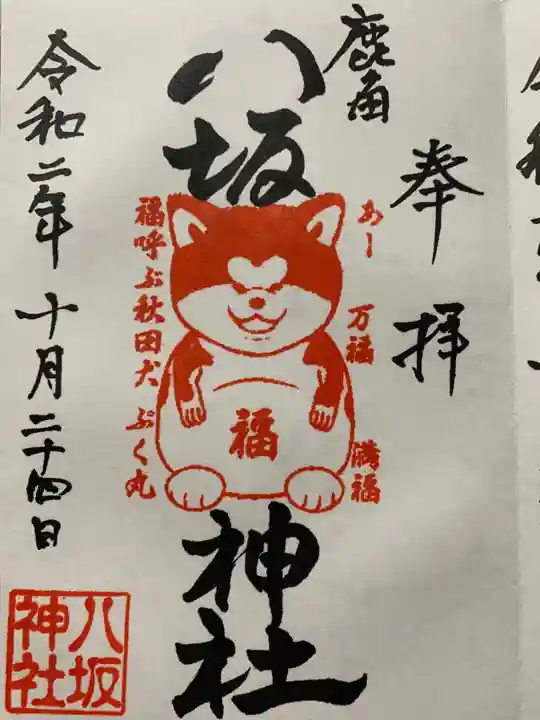 奉拝
鹿角
八坂神社
あー
万福
満福
福
福呼ぶ秋田犬 ぷく丸
令和二年十月二十四日
八坂神社